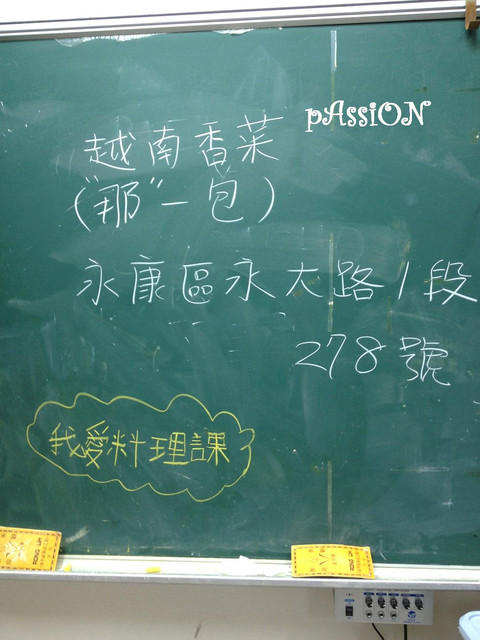 pAssiON
越南香菜
("那"一包)
永康區永大路1段
278號
我愛料理課